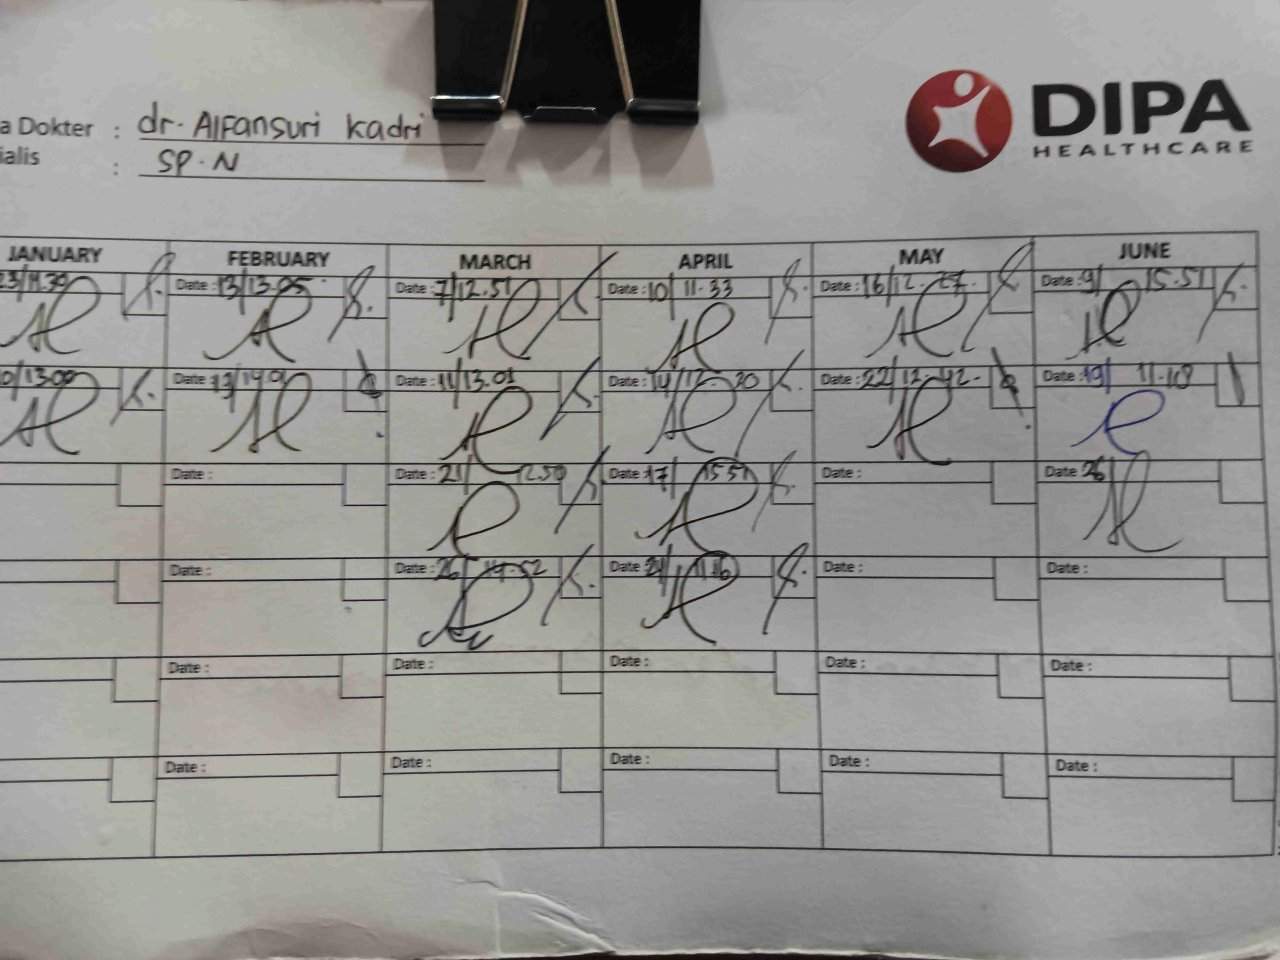 DIPA
HEALTHCARE
a Dokter : dr. Alfansuri Kadri
ialis : SP.N
JANUARY FEBRUARY MARCH APRIL MAY JUNE
Date : 13/13.05 Date : 7/12.51 Date : 10/ 11.33 Date : 16/12.27. Date : 9/ 15.51
Date : Date : 11/13.01 Date : 14/ Date : 22/12.42. Date : 19/
Date : Date : 21/ 12.50 Date : 17/ 15 51 Date : Date : 26/
Date : Date : 26/ 14 52 Date : Date : Date :
Date : Date : Date : Date : Date :
Date : Date : Date : Date : Date :